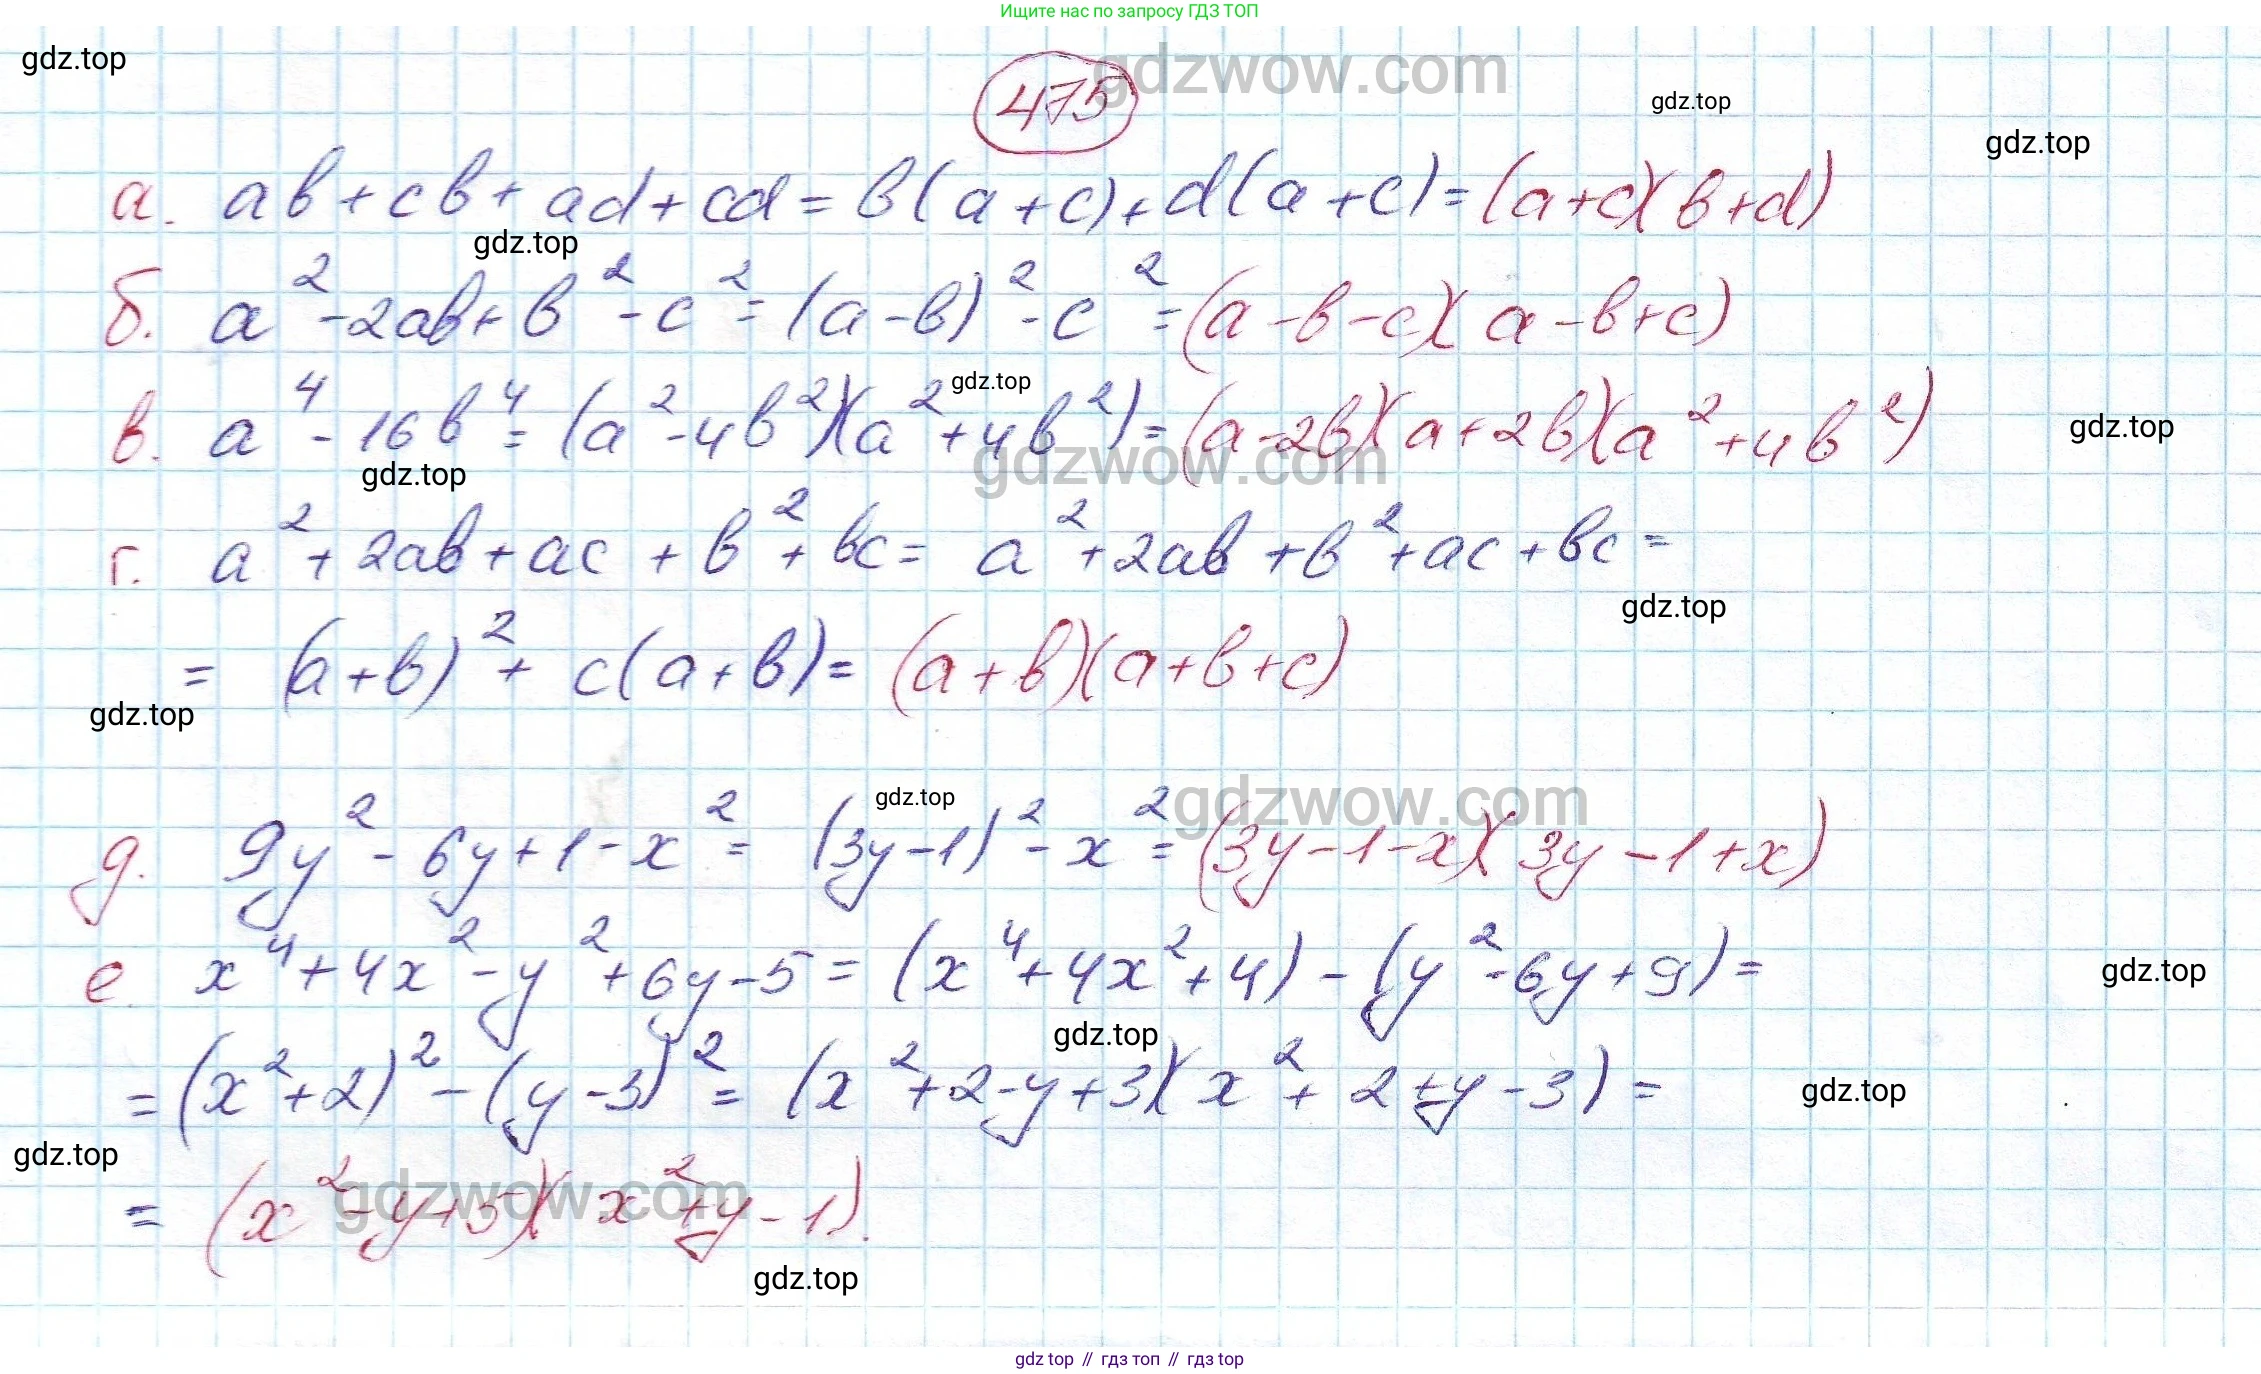 Ищите нас по запросу ГДЗ ТОП
gdz.top
gdzwow.com
475
gdz.top
gdz.top
а. ab + cb + ad + cd = b(a + c) + d(a + c) = (a + c)(b + d)
gdz.top
б. a² - 2ab + b² - c² = (a - b)² - c² = (a - b - c)(a - b + c)
gdz.top
в. a⁴ - 16b⁴ = (a² - 4b²)(a² + 4b²) = (a - 2b)(a + 2b)(a² + 4b²)
gdz.top
gdzwow.com
gdz.top
г. a² + 2ab + ac + b² + bc = a² + 2ab + b² + ac + bc =
gdz.top
= (a + b)² + c(a + b) = (a + b)(a + b + c)
gdz.top
gdz.top
gdzwow.com
д. 9y² - 6y + 1 - x² = (3y - 1)² - x² = (3y - 1 - x)(3y - 1 + x)
е. x⁴ + 4x² - y² + 6y - 5 = (x⁴ + 4x² + 4) - (y² - 6y + 9) =
gdz.top
gdz.top
= (x² + 2)² - (y - 3)² = (x² + 2 - y + 3)(x² + 2 + y - 3) =
gdz.top
gdz.top
gdzwow.com
= (x² - y + 5)(x² + y - 1).
gdz.top
gdz top // гдз топ // гдз top